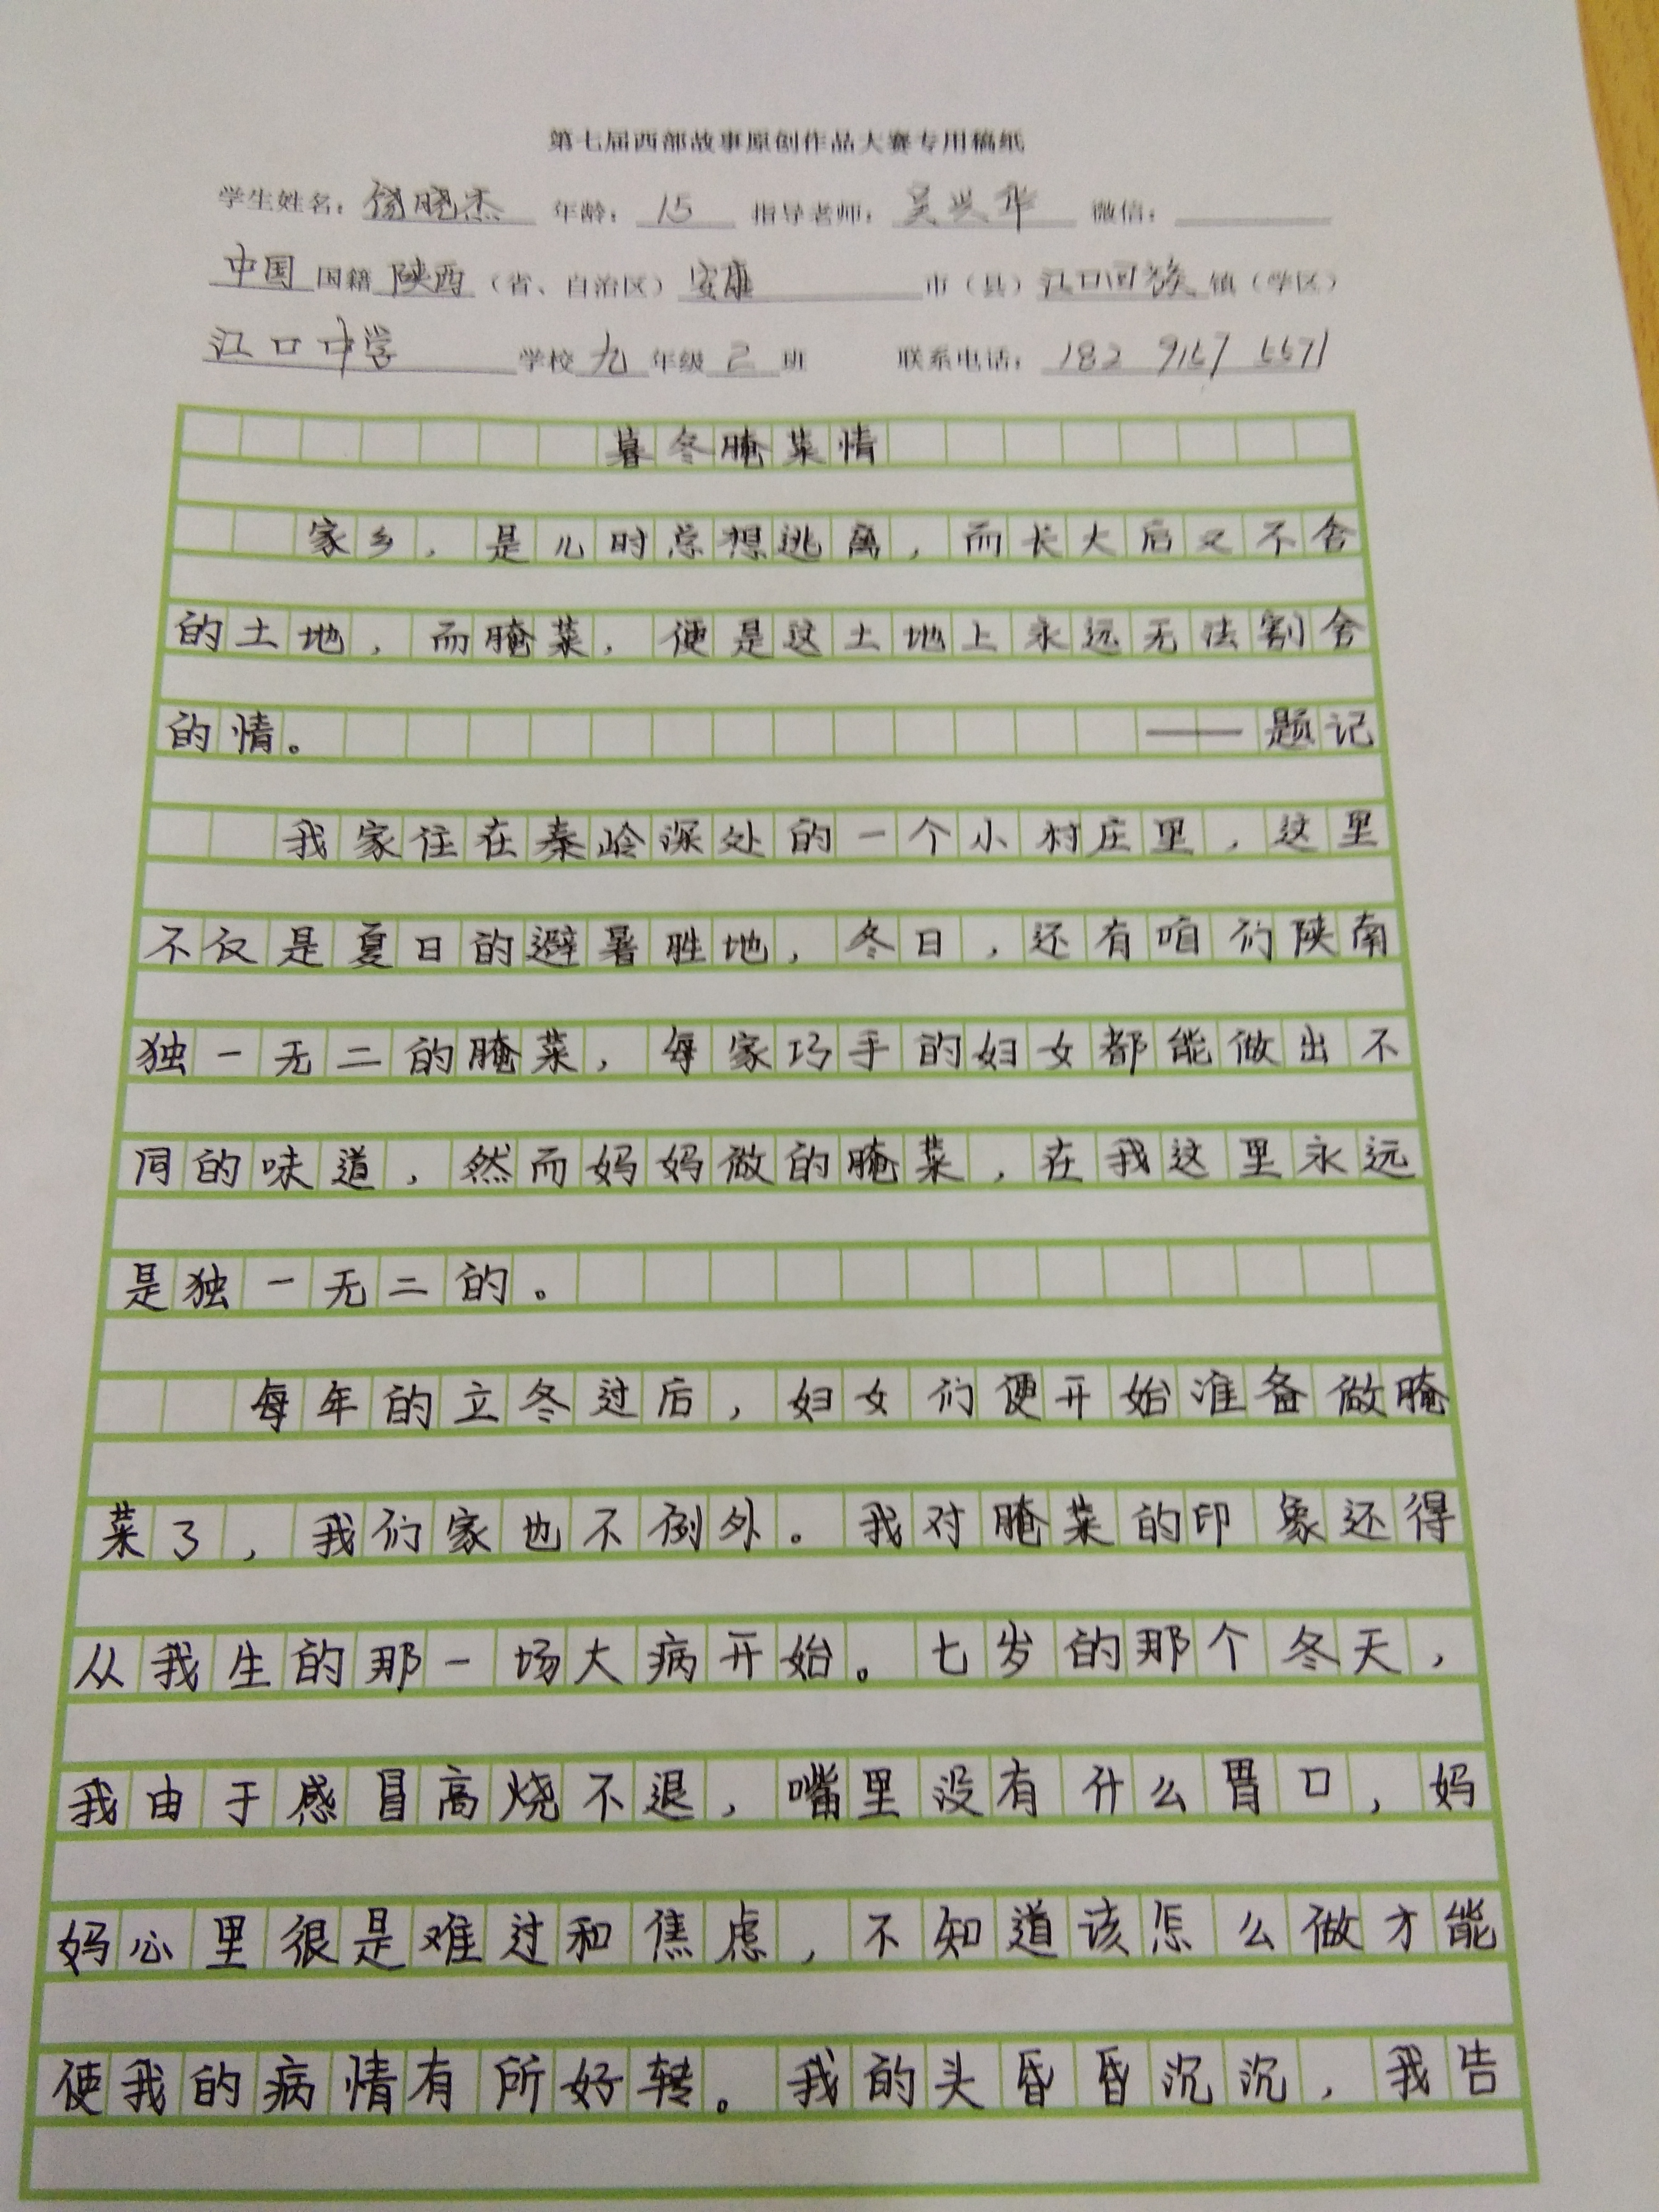 第七届西部故事原创作品大赛专用稿纸
学生姓名：饶晓杰 年龄：15 指导老师：吴兴华 微信：
中国国籍 陕西（省、自治区）安康 市（县）江口回族镇（学区）
江口中学 学校 九 年级 2 班 联系电话：182 9167 5571
暮冬腌菜情
家乡，是儿时总想逃离，而长大后又不舍
的土地，而腌菜，便是这土地上永远无法割舍
的情。 ——题记
我家住在秦岭深处的一个小村庄里，这里
不仅是夏日的避暑胜地，冬日，还有咱们陕南
独一无二的腌菜，每家巧手的妇女都能做出不
同的味道，然而妈妈做的腌菜，在我这里永远
是独一无二的。
每年的立冬过后，妇女们便开始准备做腌
菜了，我们家也不例外。我对腌菜的印象还得
从我生的那一场大病开始。七岁的那个冬天，
我由于感冒高烧不退，嘴里没有什么胃口，妈
妈心里很是难过和焦虑，不知道该怎么做才能
使我的病情有所好转。我的头昏昏沉沉，我告